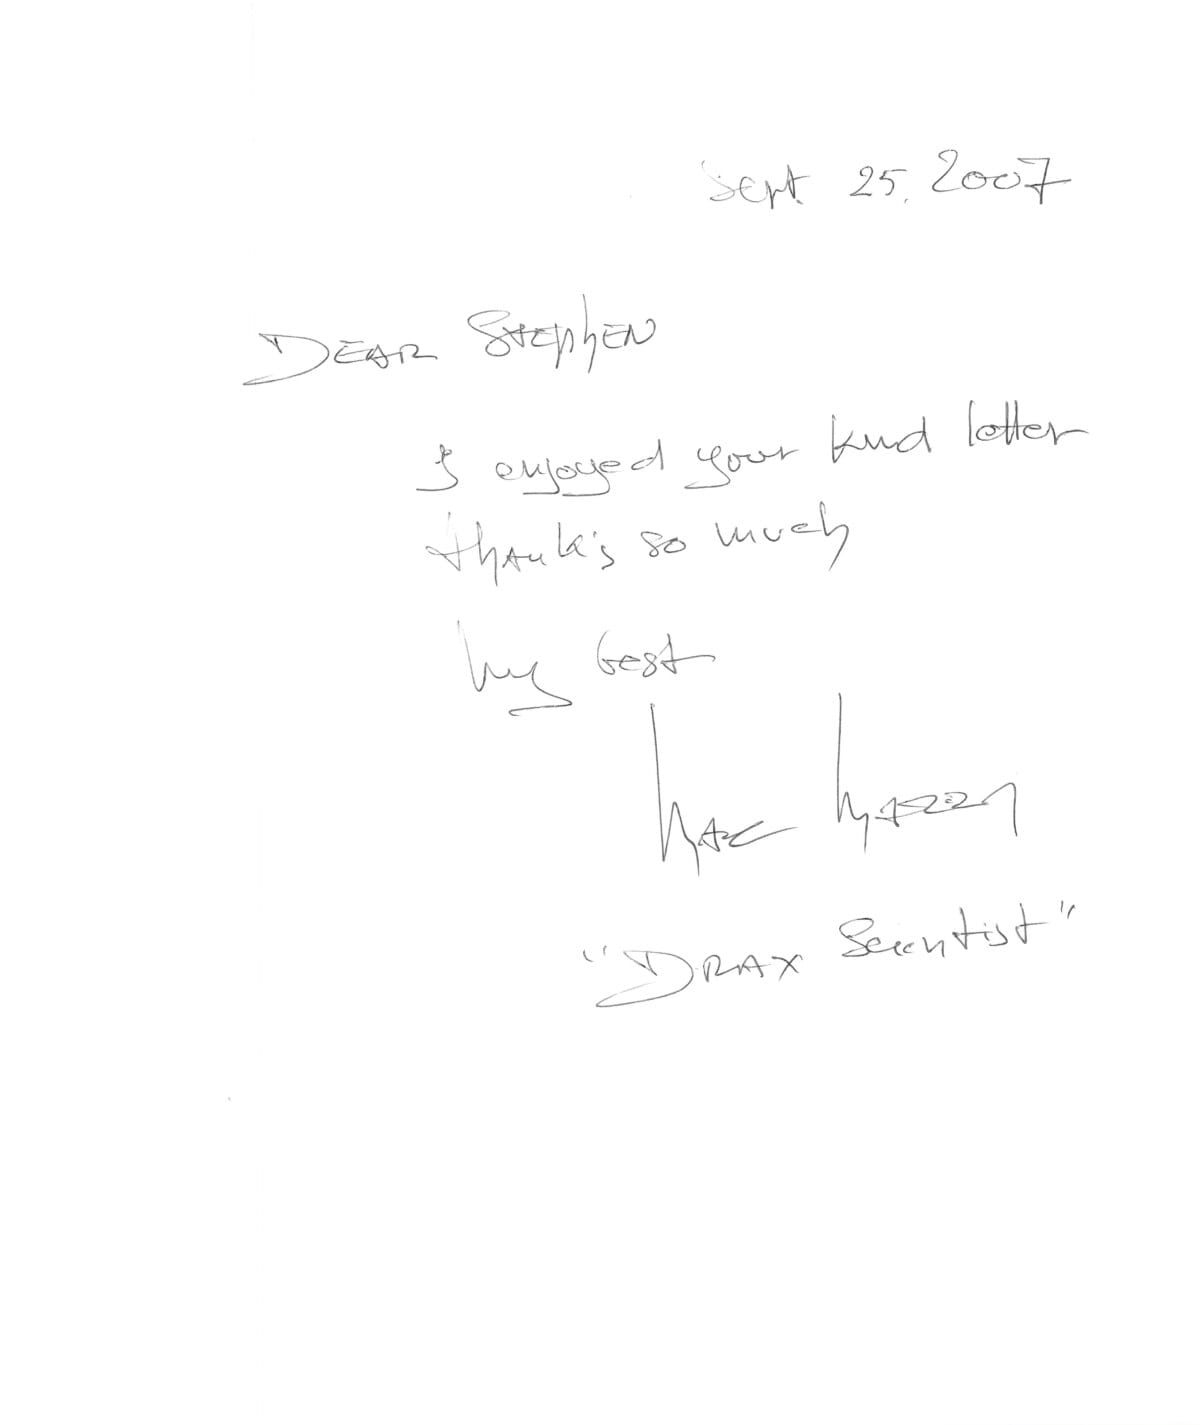 Sept. 25, 2007
DEAR StEphEN
I enjoyed your kind letter
thank's so much
My best
MAC MAZZA
"DRAX Scientist"